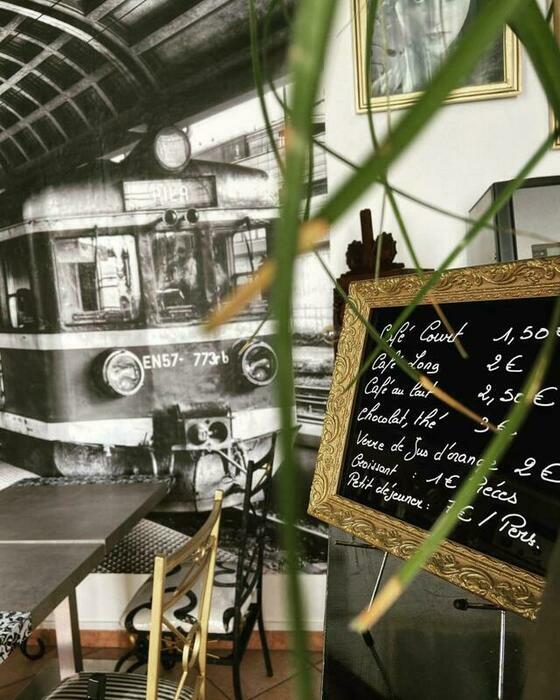 PIŁA
EN57- 773rb
Café Court 1,50€
Café Long 2€
Café au lait 2,50€
Chocolat, thé 3€
Verre de Jus d'orange 2€
Croissant : 1€ Pièces
Petit déjeuner : 7€ / Pers.